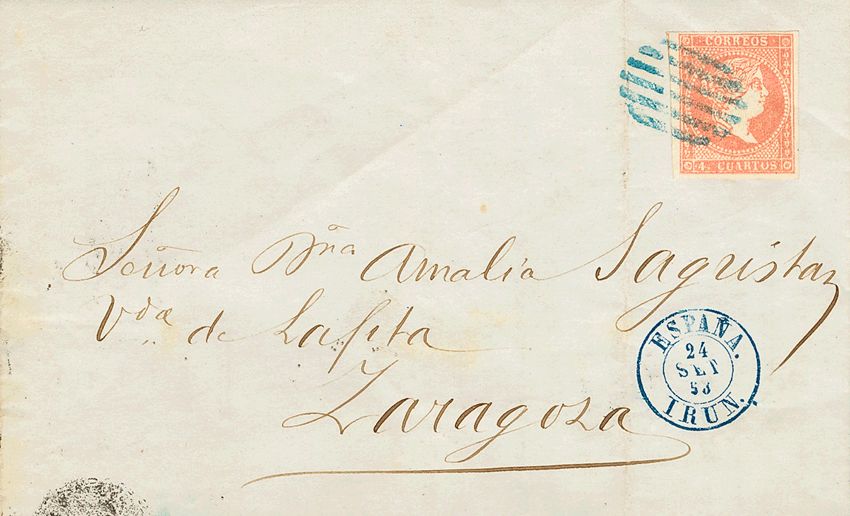 CORREOS
4 CUARTOS
Señora Dña Amalia Sagristan
Vda de Lafita
Zaragoza
ESPAÑA.
24
SET
58
IRUN.